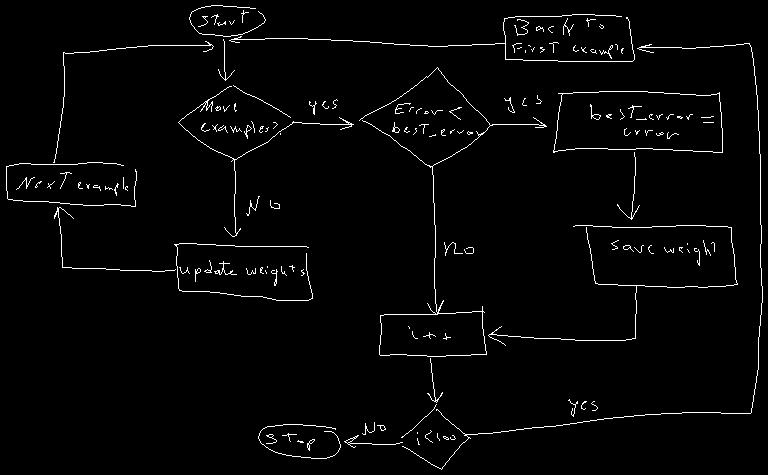 Start
Back to
First example
More
examples?
yes
Error <
best_error
yes
best_error =
error
Next example
No
update weights
no
save weight
i++
i<100
yes
No
Stop